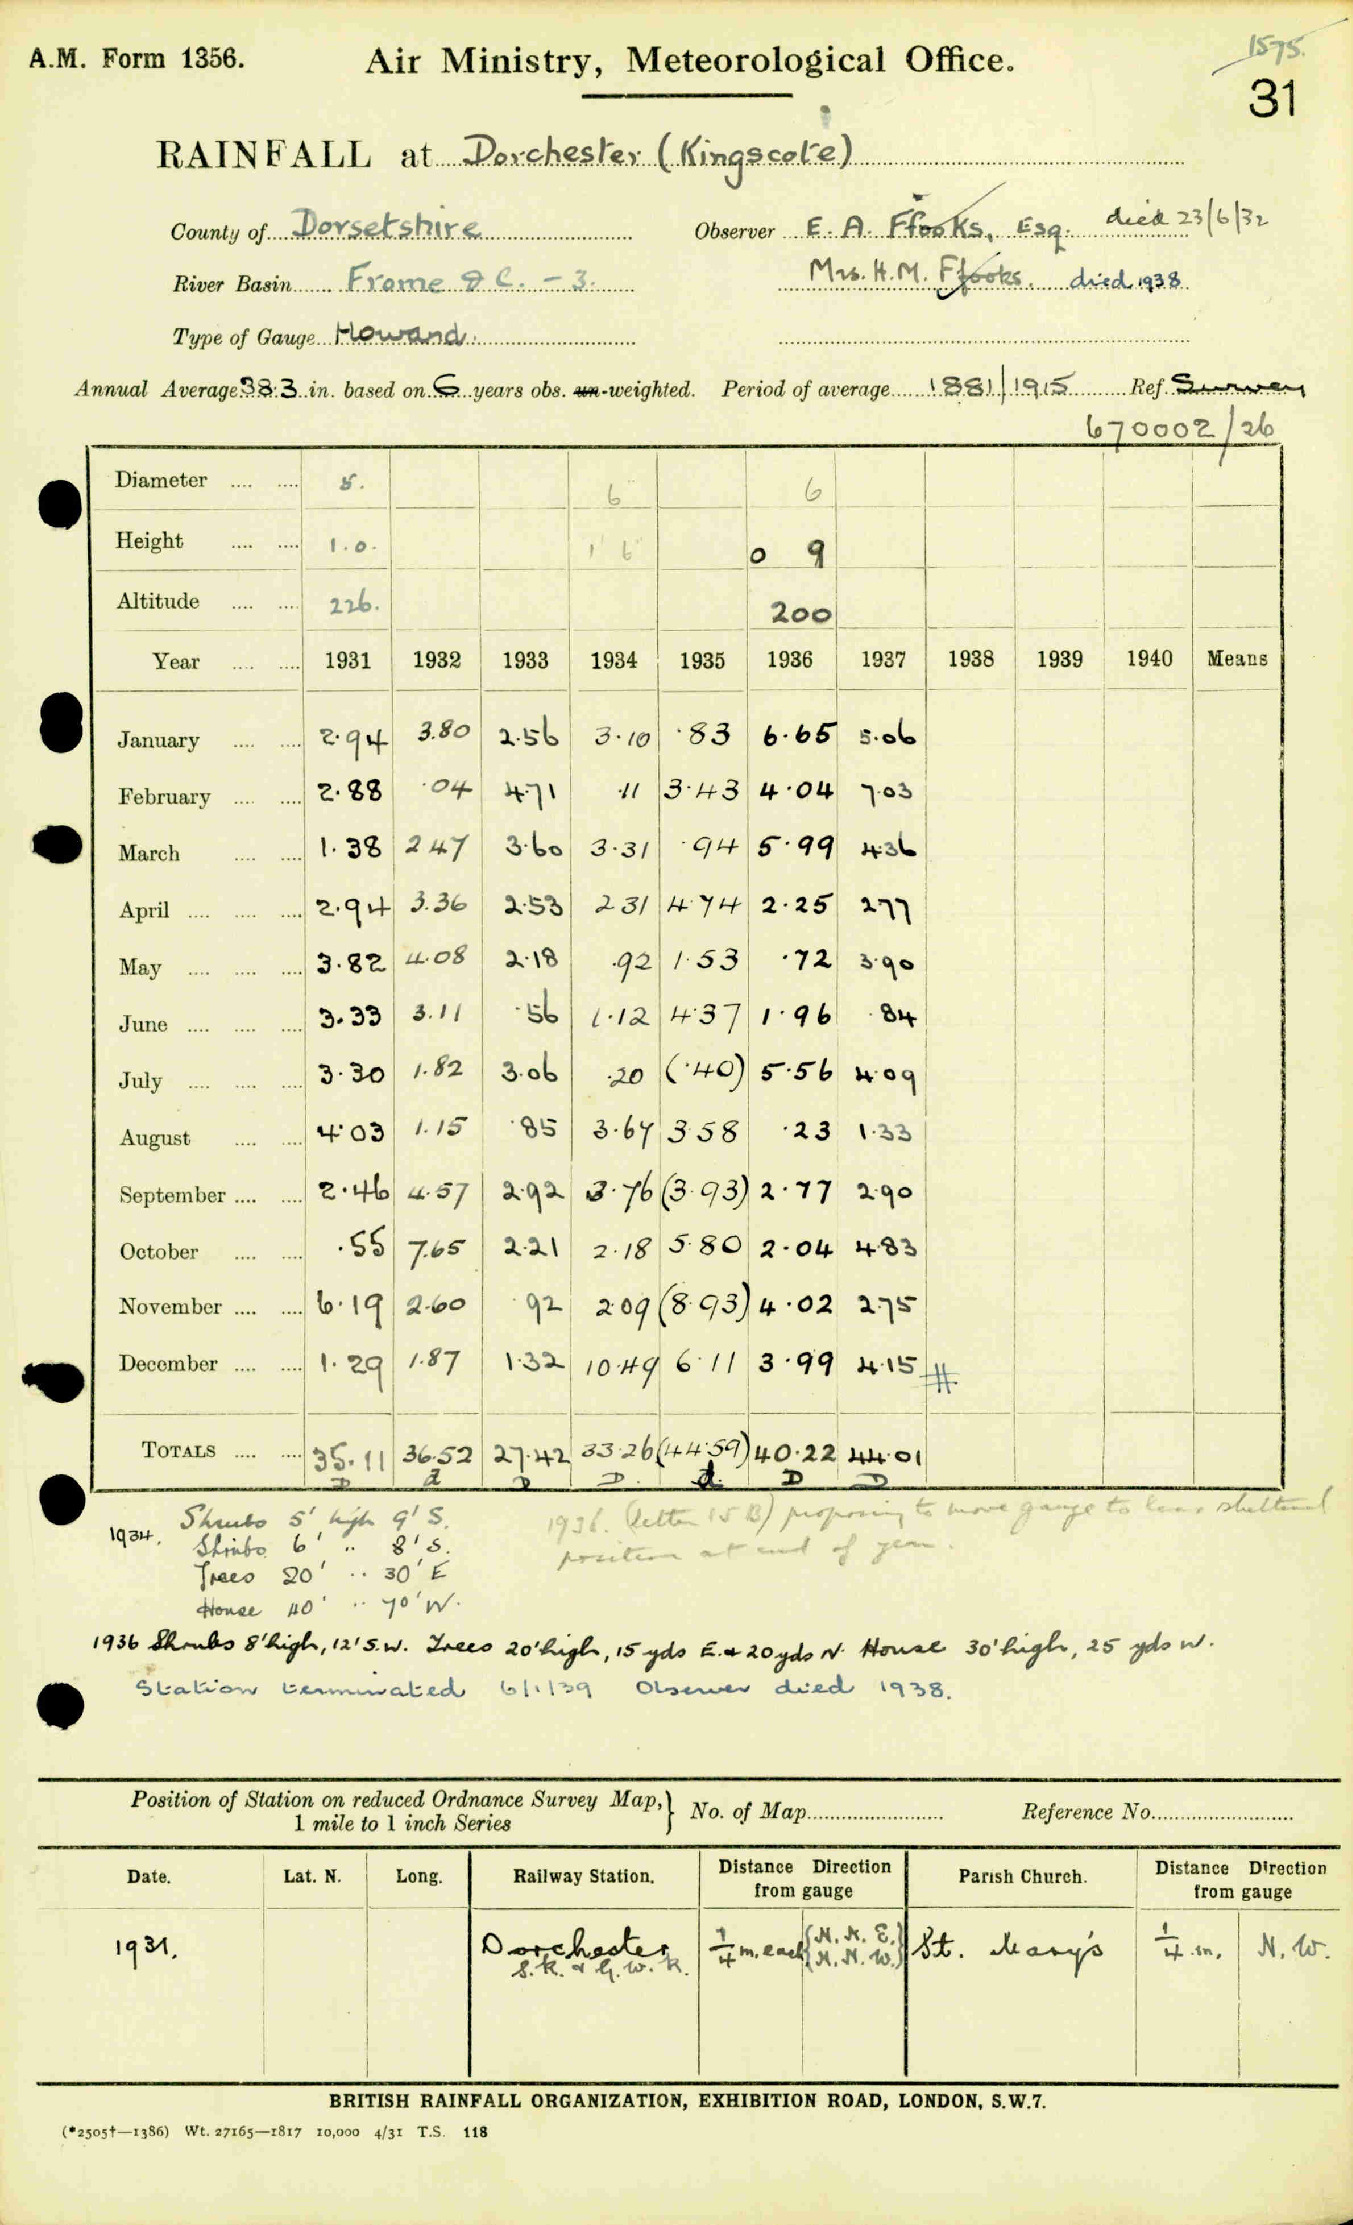 1575.
A.M. Form 1356. Air Ministry, Meteorological Office.
31
RAINFALL at Dorchester (Kingscote)
County of Dorsetshire Observer E. A. Ffooks, Esq. died 23/6/32
River Basin Frome &c. - 3. Mrs. H.M. Ffooks. died 1938
Type of Gauge Howard
Annual Average 38.3 in. based on 6 years obs. un-weighted. Period of average 1881/1915 Ref. Survey
670002/26
Diameter 5. 6 6
Height 1.0. 1' 6" 0 9
Altitude 226. 200
Year 1931 1932 1933 1934 1935 1936 1937 1938 1939 1940 Means
January 2.94 3.80 2.56 3.10 .83 6.65 5.06
February 2.88 .04 4.71 .11 3.43 4.04 7.03
March 1.38 2.47 3.60 3.31 .94 5.99 4.36
April 2.94 3.36 2.53 2.31 4.74 2.25 2.77
May 3.82 4.08 2.18 .92 1.53 .72 3.90
June 3.33 3.11 .56 1.12 4.37 1.96 .84
July 3.30 1.82 3.06 .20 (.40) 5.56 4.09
August 4.03 1.15 .85 3.67 3.58 .23 1.33
September 2.46 4.57 2.92 3.76 (3.93) 2.77 2.90
October .55 7.65 2.21 2.18 5.80 2.04 4.83
November 6.19 2.60 .92 2.09 (8.93) 4.02 2.75
December 1.29 1.87 1.32 10.49 6.11 3.99 4.15 #
TOTALS 35.11 36.52 27.42 33.26 (44.59) 40.22 44.01
D d D D. d. D D
1934. Shrubs 5' high 9' S. 1936. (letter 15 B) proposing to move gauge to less sheltered
Shrubs 6' " 8' S. position at end of year.
Trees 20' " 30' E
House 40' " 70' W.
1936 Shrubs 8' high, 12' S.W. Trees 20' high, 15 yds E. & 20 yds N. House 30' high, 25 yds W.
Station terminated 6/1/39 Observer died 1938.
Position of Station on reduced Ordnance Survey Map, } No. of Map Reference No.
1 mile to 1 inch Series
Date. Lat. N. Long. Railway Station. Distance Direction from gauge Parish Church. Distance Direction from gauge
1931. Dorchester 1/4 m. each {N. N. E.} St. Mary's 1/4 m. N. W.
S.R. & G.W.R. {N. N. W.}
BRITISH RAINFALL ORGANIZATION, EXHIBITION ROAD, LONDON, S.W.7.
(*2505†—1386) Wt. 27165—1817 10,000 4/31 T.S. 118